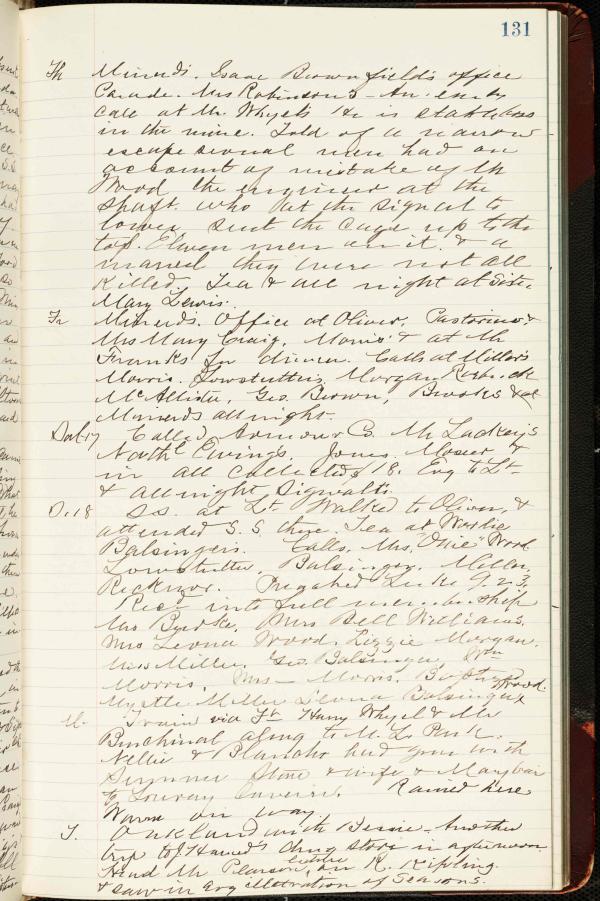 131
Th Minerd's. Isaac Brownfield's office
Mrs Robinson's -
call at Mr. Whyel's He is
in the mine. Told of a narrow
escape several men had on
account of mistake of Mr
Wood the engineer at the
shaft. who let the signal to
lower, sent the cage up to the
top. Eleven men on it. & a
marvel they were not all
killed. Tea & all night at Sister
Mary Lewis.
Fr Minerds. Office at Oliver,
Mrs Mary Craig, Morris' & at Mr
Franks for dinner. Calls at Millers
Morris. Lowstutters, Morgan
McAllister, Geo. Brown, Brooks & at
Minerds all night.
Sat. 17 Called Armour Co. Mr Lackey's
North Ewings. Jones. Moser, &
in all collected $ 18. to Lt
& all night Sigwalts.
S. 18 S.S. at Lt. Walked to Oliver, &
attended S. S. there. Tea at
Balsingers. Calls, Mrs. "Onie" Wood
Lowstutter, Balsinger, Miller,
Preached Luke 9. 23,
Rec'd into full membership
Mrs Burke, Mrs Bell Williams,
Mrs Leona Wood. Lizzie Morgan.
Miss Miller, Geo. Balsinger, Wm
Morris, Mrs - Morris. Baptized
Myrtle Miller Leona Balsinger & Wood.
M. Train via Ft Harry Whyel & Mr
Burchinal along to M. L. Park.
Nellie & Blanche had gone with
Sumner Stone & wife &
to Cavern. Rained here
Warm on way
T. Oakland with Bessie - Another
trip to J Hamed's drug store in afternoon
Heard Mr Pearson, lecture on R. Kipling.
& saw in evg illustration of Seasons.